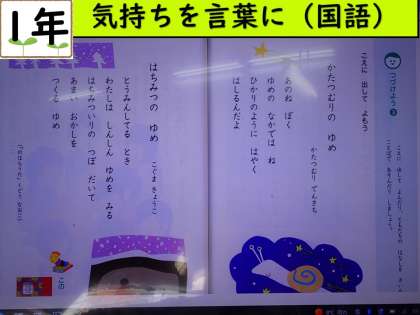 1年
気持ちを言葉に（国語）
つづけよう③
こえに 出して よもう
かたつむりの ゆめ
かたつむり でんきち
あのね ぼく
ゆめの なかでは ね
ひかりのように はやく
はしるんだよ
はちみつの ゆめ
こぐま きょうこ
とうみんしてる とき
わたしは しんしん ゆめを みる
はちみついりの つぼ だいて
あまい おかしを
つくる ゆめ